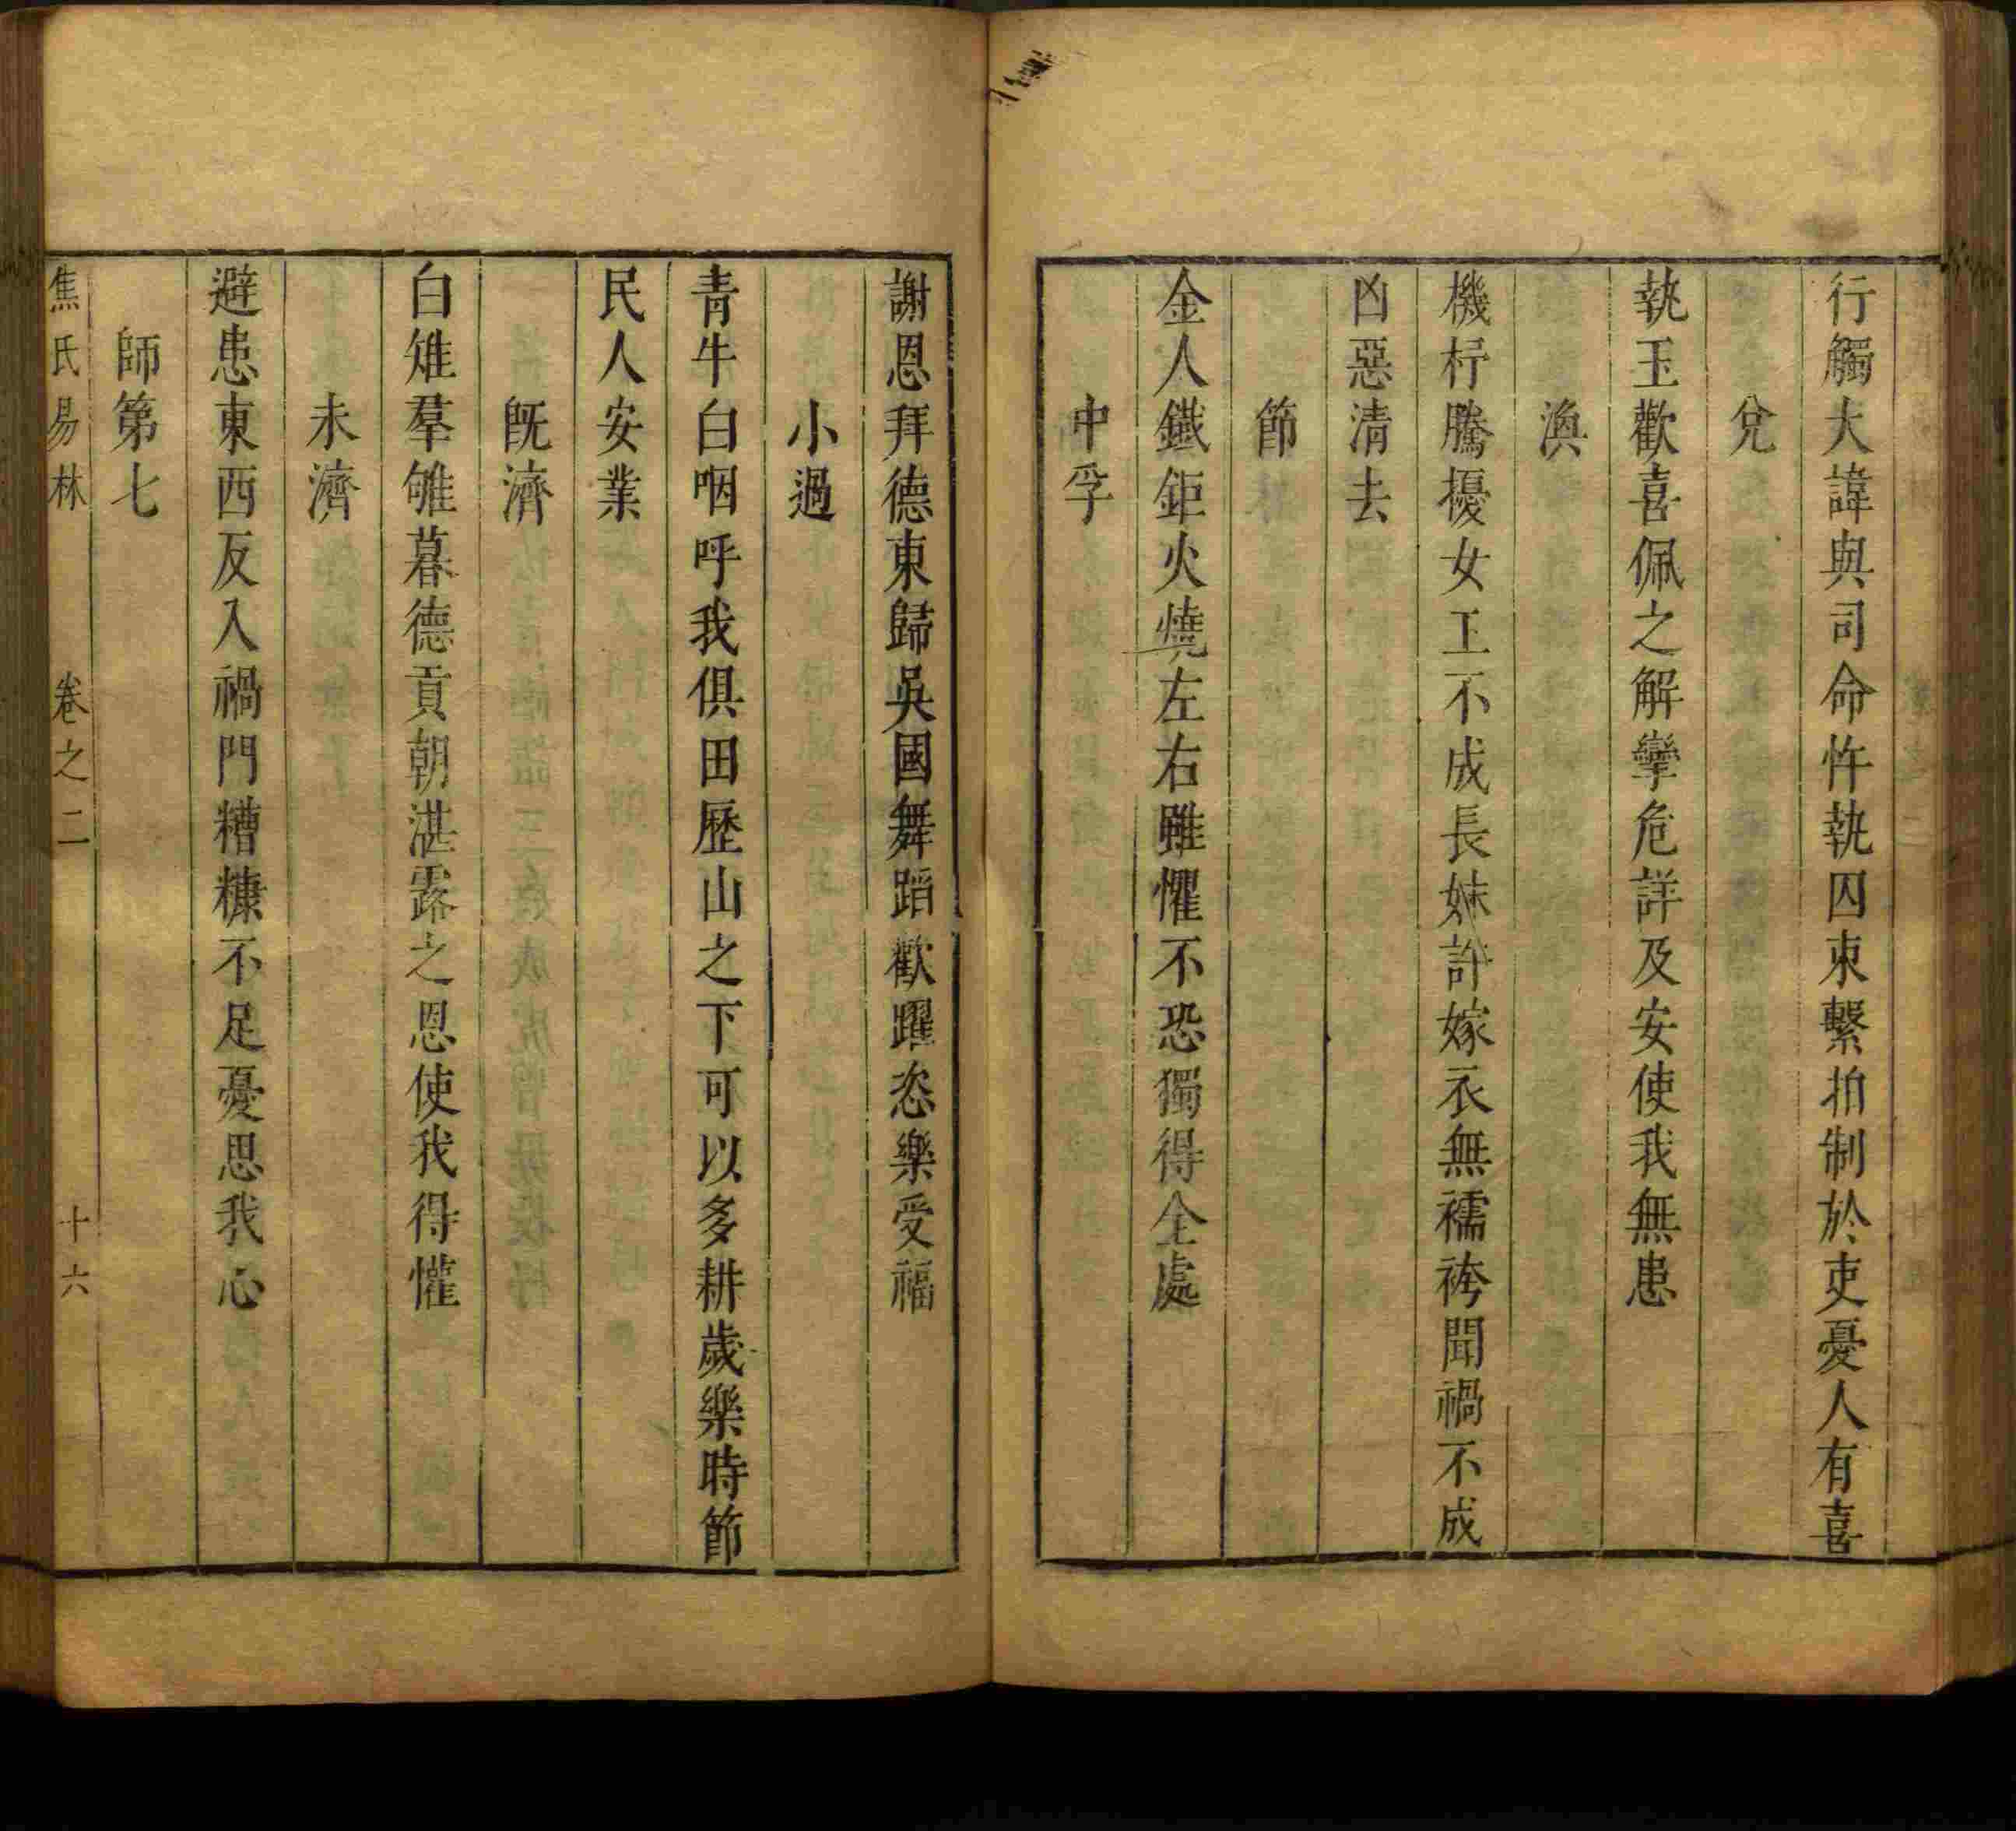 行觸大諱與司命忤執囚束繫拍制於吏憂人有喜
兌
執玉歡喜佩之解攣危詳及安使我無患
渙
機杼騰擾女工不成長妹許嫁衣無襦袴聞禍不成
凶惡清去
節
金人鐵鉅火燒左右雖懼不恐獨得全處
中孚
謝恩拜德東歸吳國舞蹈歡躍恣樂受福
小過
青牛白咽呼我俱田歷山之下可以多耕歲樂時節
民人安業
旣濟
白雉羣雊暮德貢朝湛露之恩使我得懽
未濟
避患東西反入禍門糟糠不足憂思我心
師第七
焦氏易林 卷之二 十六